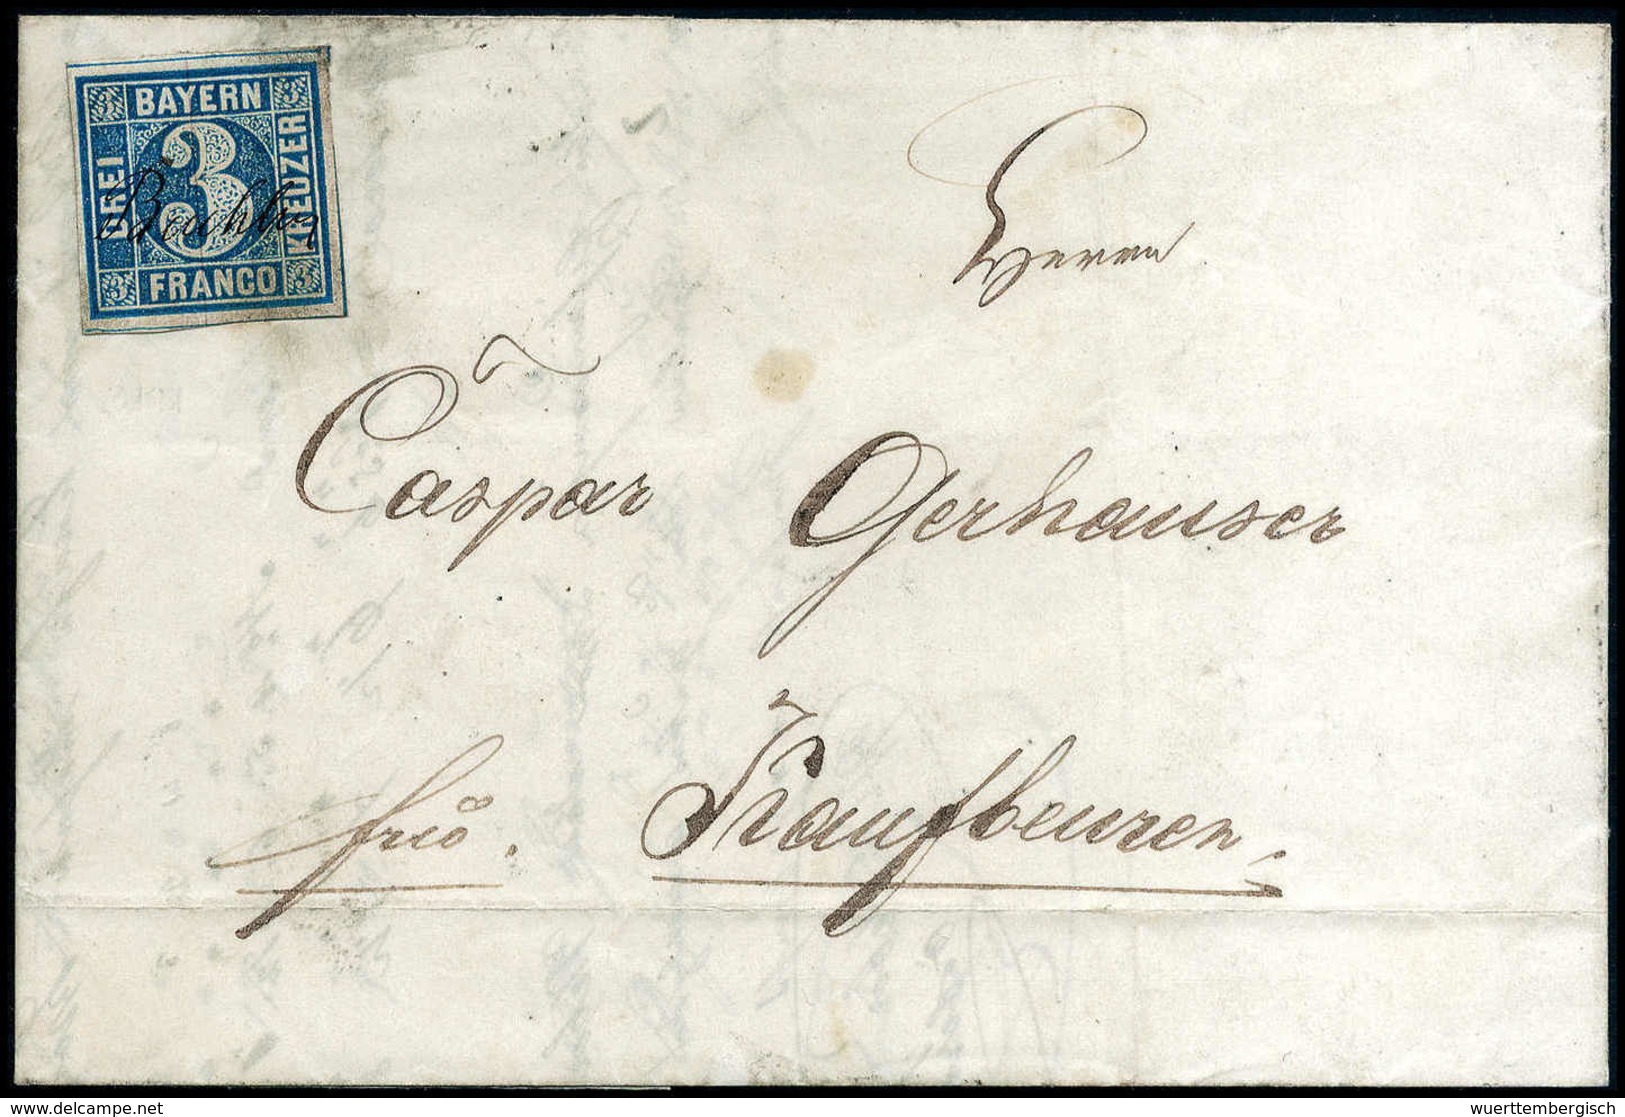 3 BAYERN 3
DREI
3
KREUZER
Buchloe
3 FRANCO 3
Herrn
Caspar Gerhauser
frco. Kaufbeuren
delcampe.net
wuerttembergisch